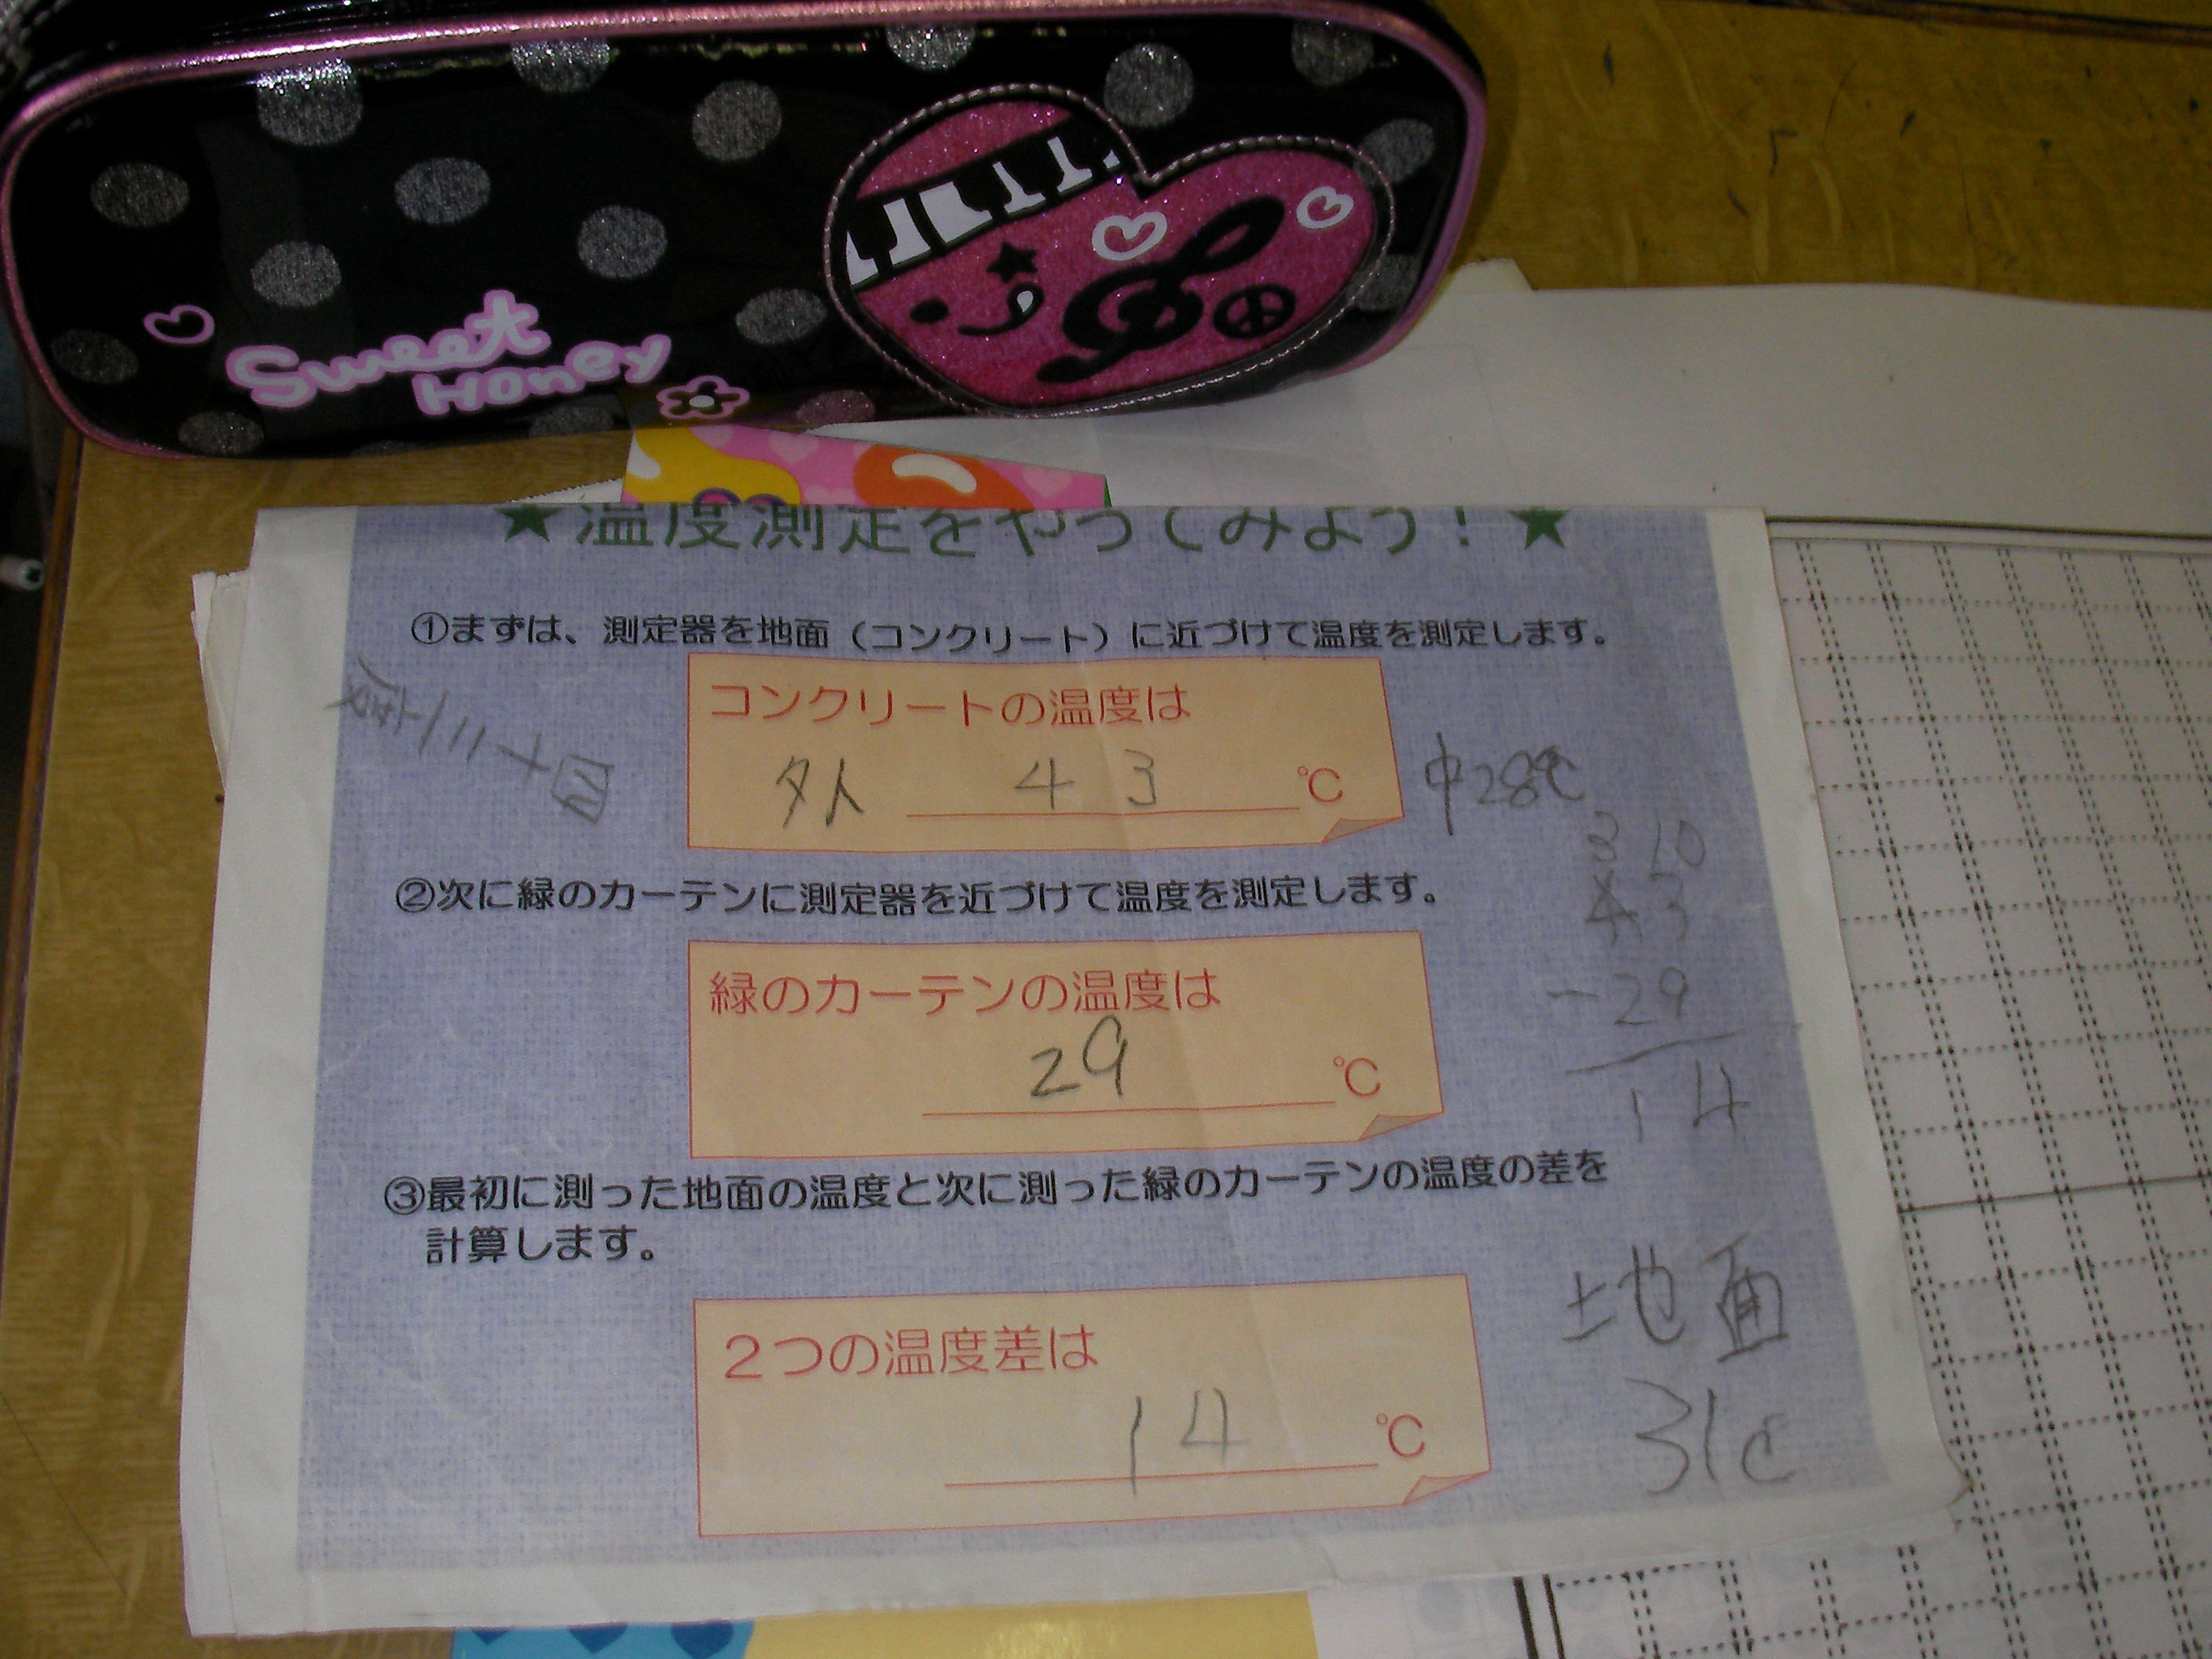 Sweet
Honey
★温度測定をやってみよう！★
①まずは、測定器を地面（コンクリート）に近づけて温度を測定します。
コンクリートの温度は
外 43 ℃
中28℃
②次に緑のカーテンに測定器を近づけて温度を測定します。
緑のカーテンの温度は
29 ℃
3 10
43
-29
14
③最初に測った地面の温度と次に測った緑のカーテンの温度の差を
計算します。
2つの温度差は
14 ℃
土地面
31c